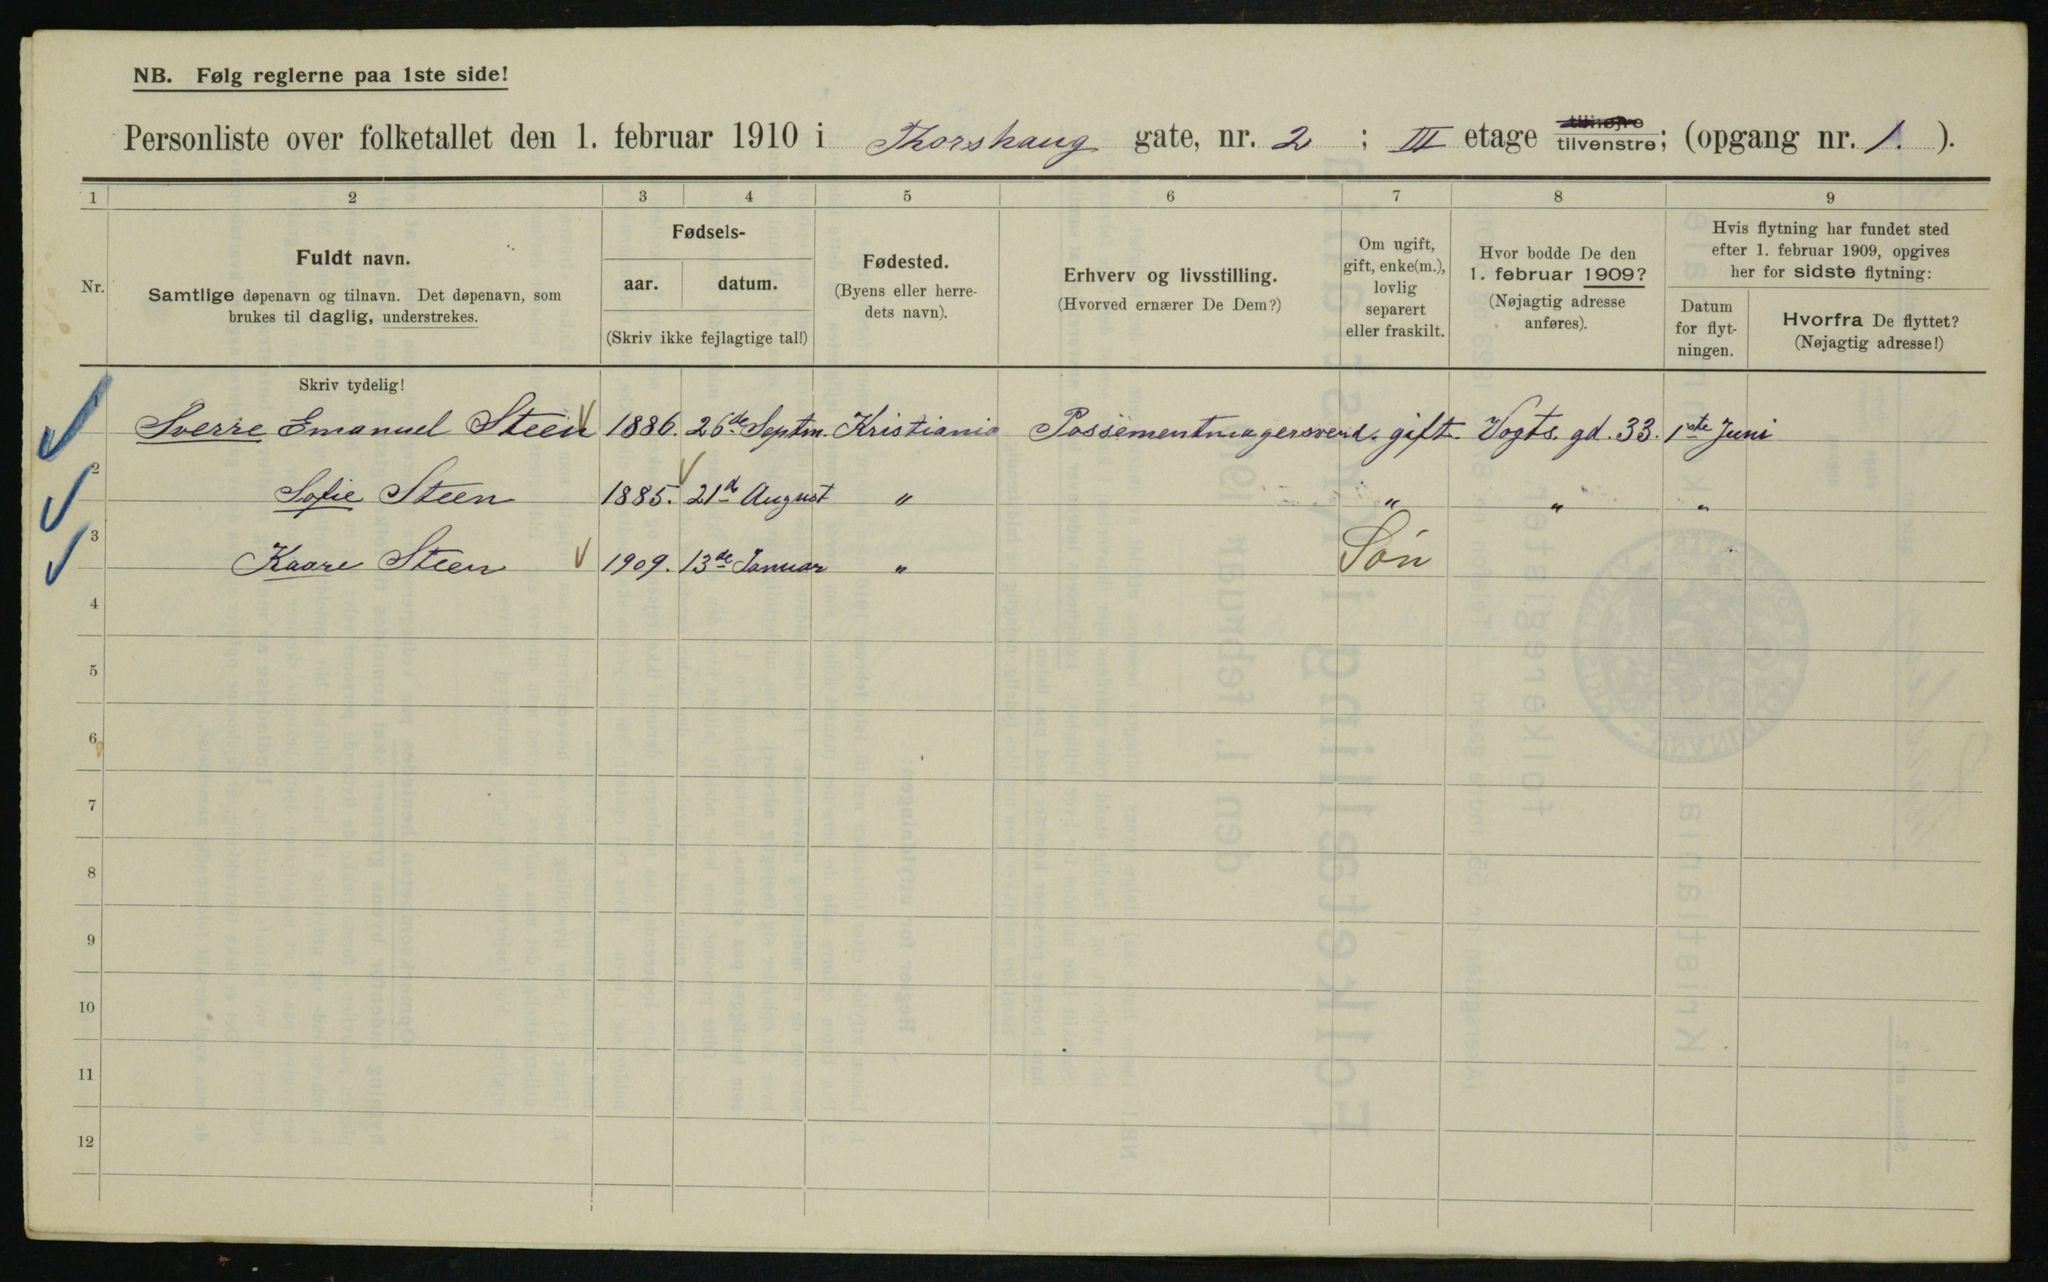 NB. Følg reglerne paa 1ste side!
Personliste over folketallet den 1. februar 1910 i Thorshaug gate, nr. 2 ; III etage tilhøjre tilvenstre; (opgang nr. 1. ).
1 2 3 4 5 6 7 8 9
Nr.
Fuldt navn.
Samtlige døpenavn og tilnavn. Det døpenavn, som
brukes til daglig, understrekes.
Skriv tydelig!
Fødsels-
aar. datum.
(Skriv ikke fejlagtige tal!)
Fødested.
(Byens eller herre-
dets navn).
Erhverv og livsstilling.
(Hvorved ernærer De Dem?)
Om ugift,
gift, enke(m.),
lovlig
separert
eller fraskilt.
Hvor bodde De den
1. februar 1909?
(Nøjagtig adresse
anføres).
Hvis flytning har fundet sted
efter 1. februar 1909, opgives
her for sidste flytning:
Datum
for flyt-
ningen.
Hvorfra De flyttet?
(Nøjagtig adresse!)
1 Sverre Emanuel Steen 1886. 26de Septm. Kristiania Possementmagersvend. gift. Vogts. gd. 33. 1ste Juni
2 Sofie Steen 1885. 21de August " " " "
3 Kaare Steen 1909. 13de Januar " Søn
4
5
6
7
8
9
10
11
12